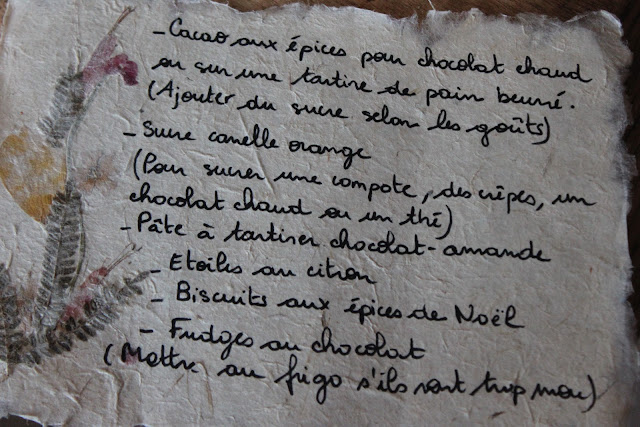 - Cacao aux épices pour chocolat chaud
ou sur une tartine de pain beurré.
(Ajouter du sucre selon les goûts)
- Sucre canelle orange
(Pour sucrer une compote, des crêpes, un
chocolat chaud ou un thé)
- Pâte à tartiner chocolat-amande
- Etoiles au citron
- Biscuits aux épices de Noël
- Fudges au chocolat
(Mettre au frigo s'ils sont trop mou)